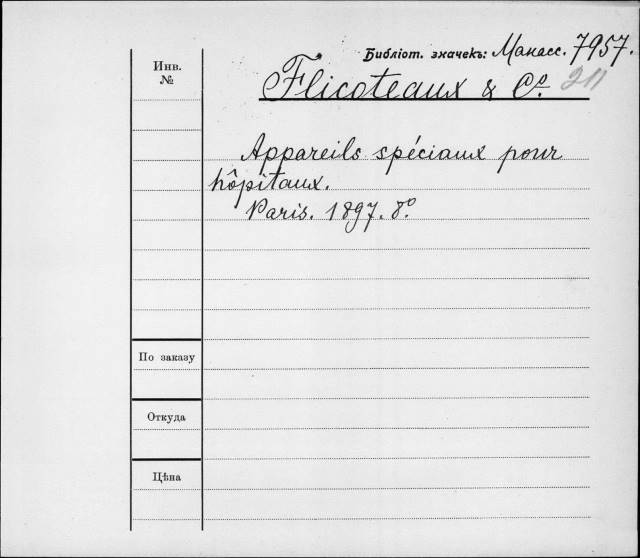 Библіот. значекъ: Манасс. 7957.
Инв.
№
Flicoteaux & Cº. 211
Appareils spéciaux pour
hôpitaux.
Paris. 1897. 8º.
По заказу
Откуда
Цѣна